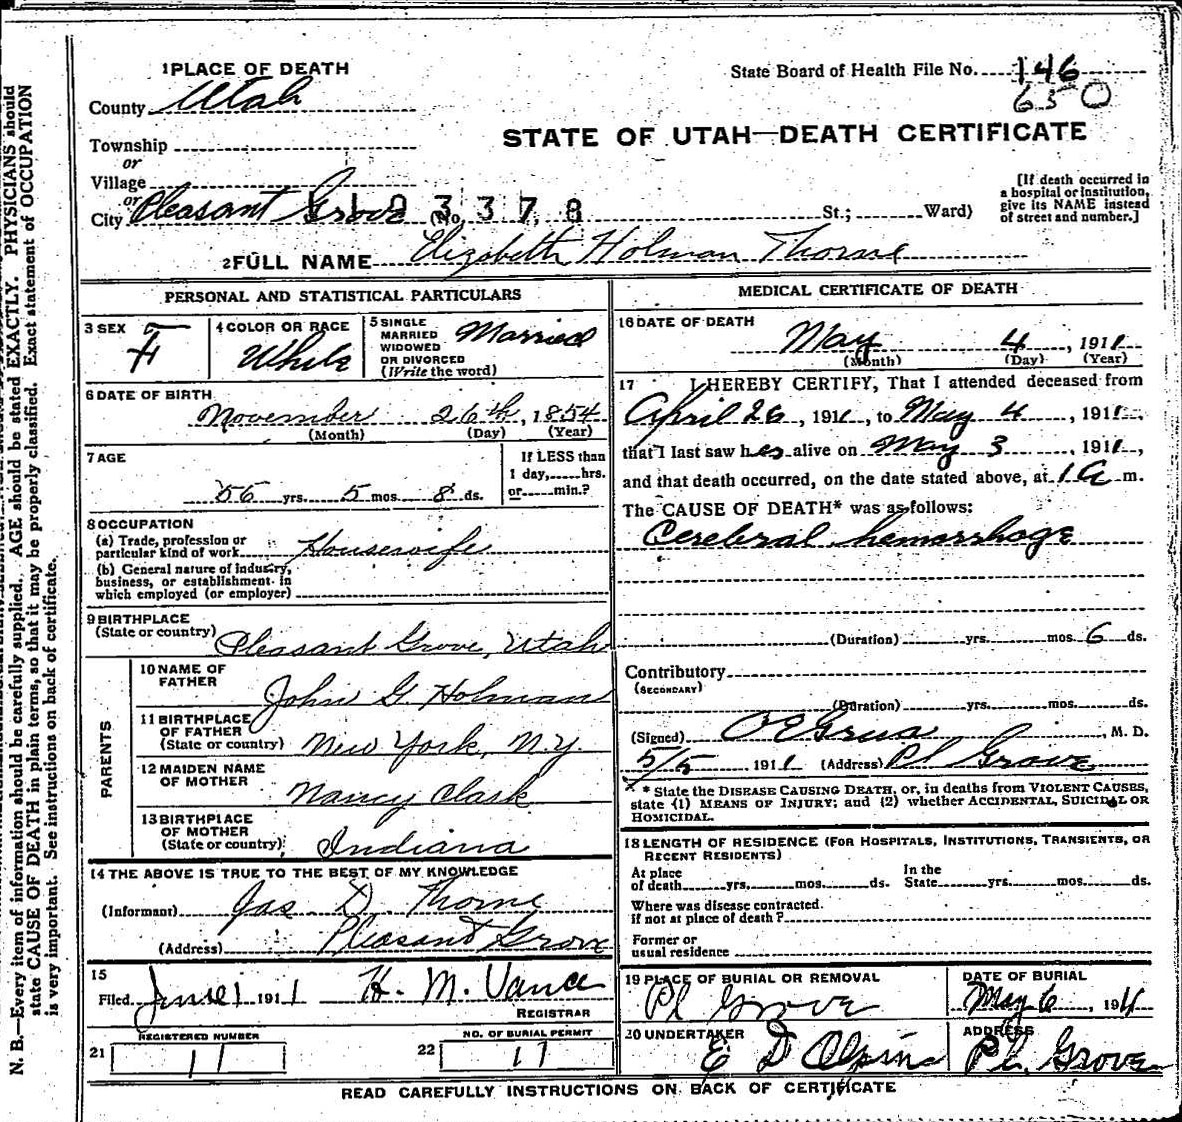 1 PLACE OF DEATH
State Board of Health File No. 146
650
County Utah
STATE OF UTAH—DEATH CERTIFICATE
Township
or
Village
or
City Pleasant Grove (No. St.; Ward)
3378
[If death occurred in
a hospital or institution,
give its NAME instead
of street and number.]
2 FULL NAME Elizabeth Holman Thorne
PERSONAL AND STATISTICAL PARTICULARS
3 SEX F
4 COLOR OR RACE White
5 SINGLE
MARRIED
WIDOWED
OR DIVORCED
(Write the word)
Married
6 DATE OF BIRTH
November 26th, 1854
(Month) (Day) (Year)
7 AGE
56 yrs. 5 mos. 8 ds.
If LESS than
1 day, hrs.
or min.?
8 OCCUPATION
(a) Trade, profession or
particular kind of work Housewife
(b) General nature of industry,
business, or establishment in
which employed (or employer)
9 BIRTHPLACE
(State or country) Pleasant Grove, Utah
PARENTS
10 NAME OF
FATHER John G. Holman
11 BIRTHPLACE
OF FATHER
(State or country) New York, N.Y.
12 MAIDEN NAME
OF MOTHER Nancy Clark
13 BIRTHPLACE
OF MOTHER
(State or country) Indiana
14 THE ABOVE IS TRUE TO THE BEST OF MY KNOWLEDGE
(Informant) Jas D. Thorne
(Address) Pleasant Grove
15
Filed June 1 1911 H. M. Vance
REGISTRAR
REGISTERED NUMBER
21 11
NO. OF BURIAL PERMIT
22 17
MEDICAL CERTIFICATE OF DEATH
16 DATE OF DEATH
May 4, 1911
(Month) (Day) (Year)
17 I HEREBY CERTIFY, That I attended deceased from
April 26, 1911, to May 4, 1911,
that I last saw her alive on May 3 1911,
and that death occurred, on the date stated above, at 1 a m.
The CAUSE OF DEATH* was as follows:
Cerebral hemorrhage
(Duration) yrs. mos. 6 ds.
Contributory
(SECONDARY)
(Duration) yrs. mos. ds.
(Signed) O E Grua, M. D.
5/5 1911 (Address) Pl Grove
* State the DISEASE CAUSING DEATH, or, in deaths from VIOLENT CAUSES,
state (1) MEANS OF INJURY; and (2) whether ACCIDENTAL, SUICIDAL OR
HOMICIDAL.
18 LENGTH OF RESIDENCE (FOR HOSPITALS, INSTITUTIONS, TRANSIENTS, OR
RECENT RESIDENTS)
At place
of death yrs. mos. ds.
In the
State yrs. mos. ds.
Where was disease contracted,
if not at place of death?
Former or
usual residence
19 PLACE OF BURIAL OR REMOVAL
Pl Grove
DATE OF BURIAL
May 6, 1911
20 UNDERTAKER
E D Olpin
ADDRESS
Pl. Grove
READ CAREFULLY INSTRUCTIONS ON BACK OF CERTIFICATE
N. B.—Every item of information should be carefully supplied. AGE should be stated EXACTLY. PHYSICIANS should
state CAUSE OF DEATH in plain terms, so that it may be properly classified. Exact statement of OCCUPATION
is very important. See instructions on back of certificate.